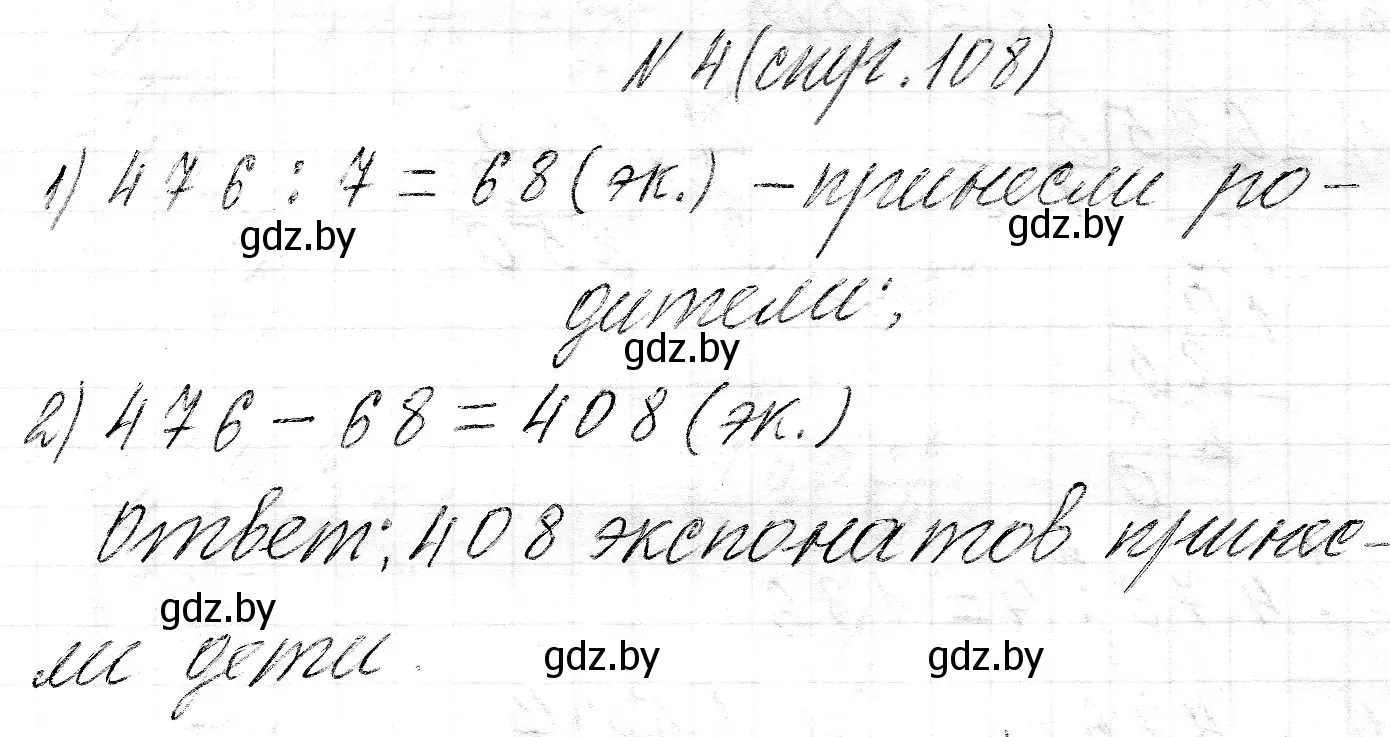 N 4 (стр. 108)
1) 476 : 7 = 68 (эк.) - принесли ро-
gdz.by gdz.by
дители;
gdz.by
2) 476 - 68 = 408 (эк.)
Ответ: 408 экспонатов принес-
gdz.by
ли дети.
gdz.by gdz.by